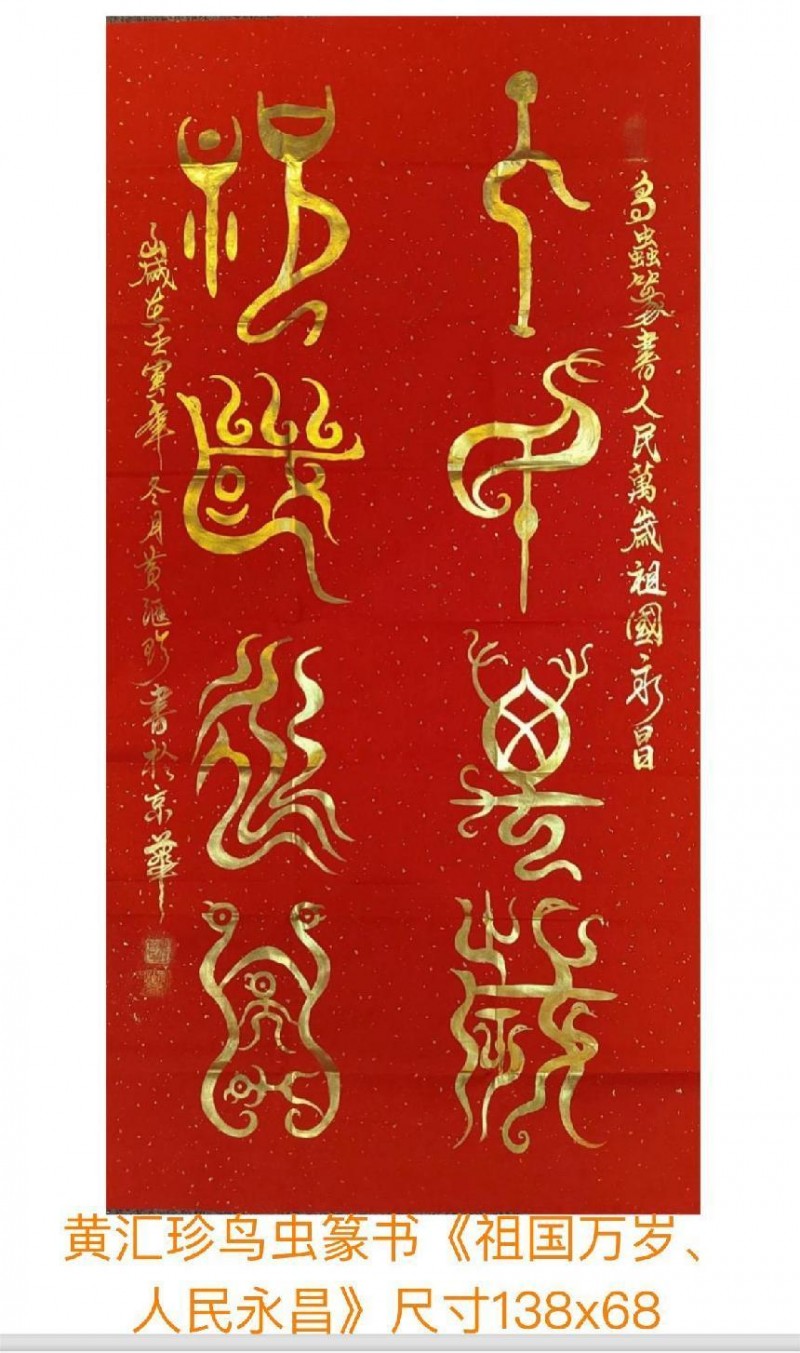 鳥蟲篆書人民萬歲祖國永昌
人民萬歲
祖國永昌
歲在壬寅年冬月黃滙珍書於京華
黄汇珍鸟虫篆书《祖国万岁、
人民永昌》尺寸138x68